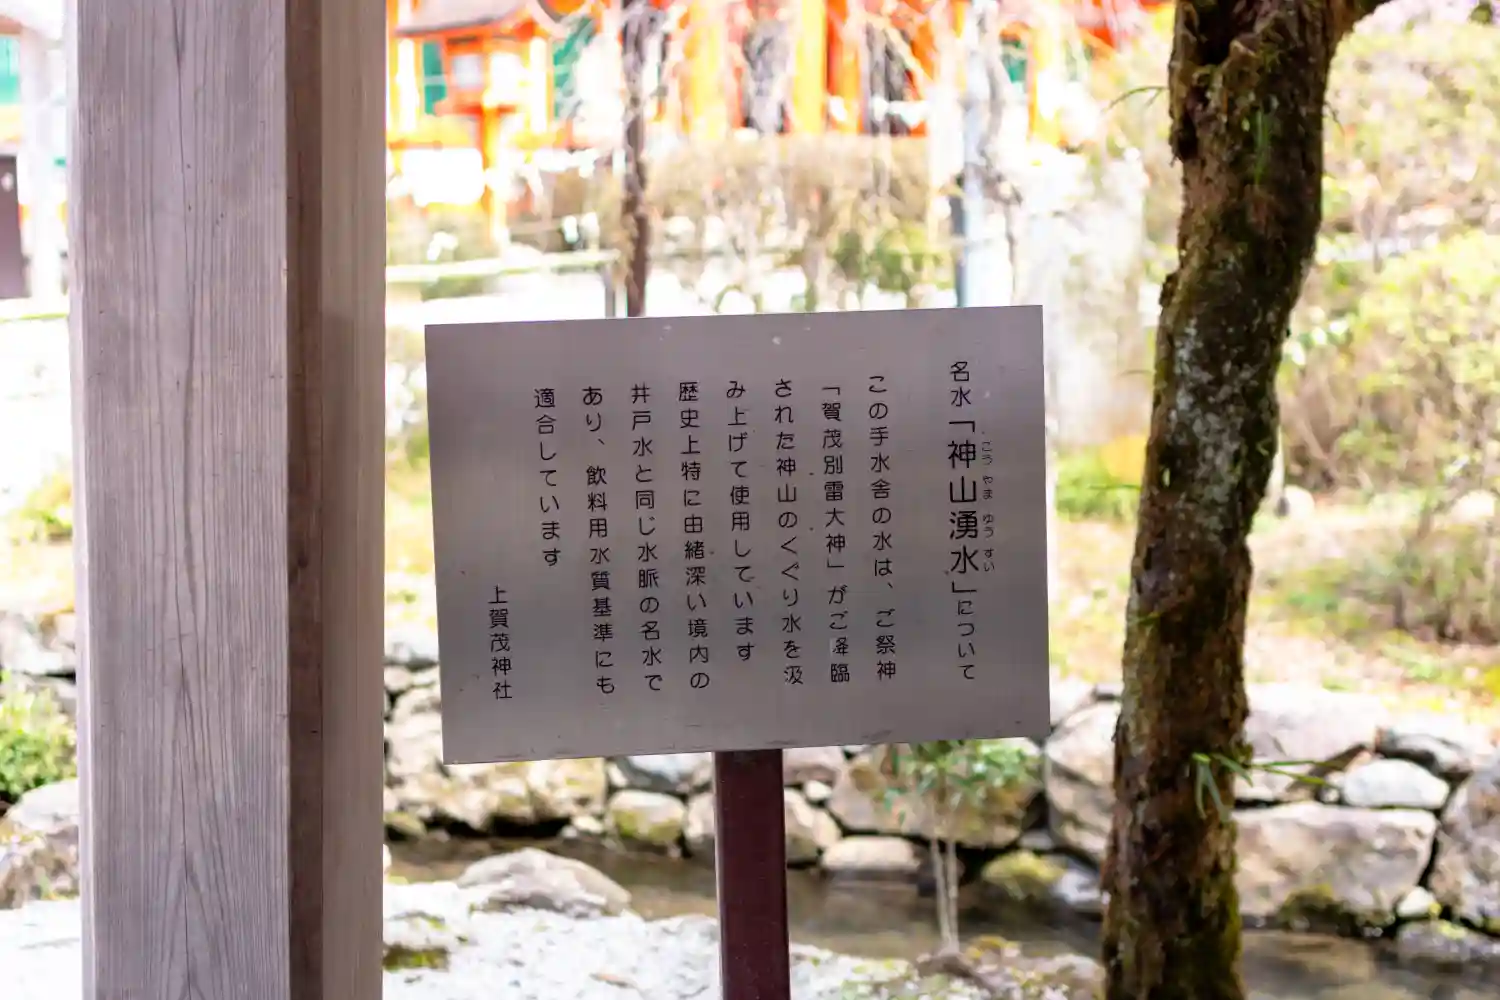 名水「神山湧水」について
こうやまゆうすい
この手水舎の水は、ご祭神
「賀茂別雷大神」がご降臨
された神山のくぐり水を汲
み上げて使用しています
歴史上特に由緒深い境内の
井戸水と同じ水脈の名水で
あり、飲料用水質基準にも
適合しています
上賀茂神社